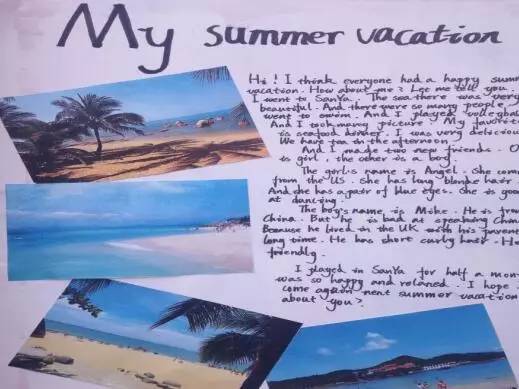 My summer vacation
Hi! I think everyone had a happy summ
vacation. How about me? Let me tell you.
I went to SanYa. The sea there was very
beautiful. And there were so many people
went to swim. And I played volleyball
And I took many picture! My favorite
is seafood dinner. I was very delicious
We have tea in the afternoon.
And I made two new friends. O
is girl, the other is a boy.
The girl's name is Angel. She come
from the US. She has long blonde hair.
And she has a pair of blue eyes. She is good
at dancing.
The boy's name is Mike. He is fro
China. But he is bad at speaking Chin
Because he lived in the UK with his parent
long time. He has short curly hair. He
friendly.
I played in SanYa for half a mon
was so happy and relaxed. I hope
come again next summer vacation
about you?